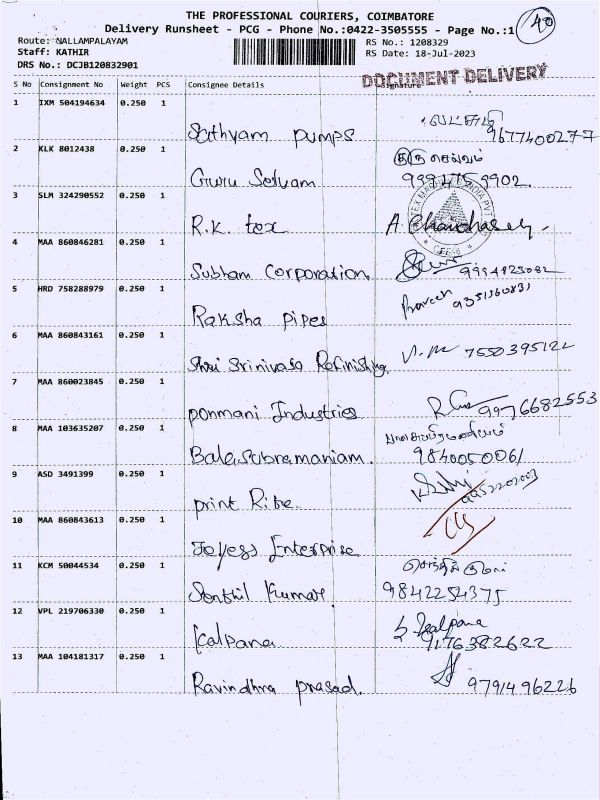 THE PROFESSIONAL COURIERS, COIMBATORE
Delivery Runsheet - PCG - Phone No.:0422-3505555 - Page No.:1
40
Route: NALLAMPALAYAM
RS No.: 1208329
Staff: KATHIR
RS Date: 18-Jul-2023
DRS No.: DCJB120832901
DOCUMENT DELIVERY
S No Consignment No Weight PCS Consignee Details Signature
1 IXM 504194634 0.250 1
Sathyam pumps 9677400277
2 KLK 8012438 0.250 1
திரு செல்வம்
Guru Selvam
3 SLM 324290552 0.250 1
R.K. tex A. Chandrasekar
4 MAA 860846281 0.250 1
Subham Corporation
5 HRD 758288979 0.250 1
Praveen
Raksha Pipes
6 MAA 860843161 0.250 1
Shri Srinivasa Refinishing 7550395122
7 MAA 860023845 0.250 1
ponmani Industries 9976682553
8 MAA 103635207 0.250 1
பாலசுப்பிரமணியம்
Balasubramaniam. 9840050061
9 ASD 3491399 0.250 1
print Rite
10 MAA 860843613 0.250 1
Joyess Enterprise
11 KCM 50044534 0.250 1
செந்தில் குமார்
Senthil Kumar 9842254375
12 VPL 219706330 0.250 1
Kalpana
Kalpana 9176382622
13 MAA 104181317 0.250 1
Ravindhra prasad. 9791496226